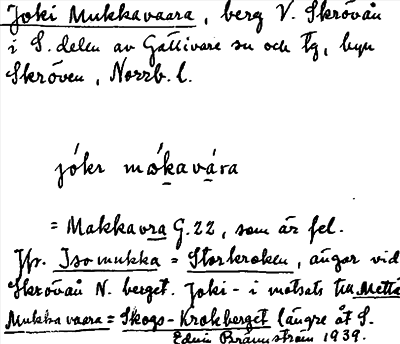 Joki Mukkavaara, berg V. Skrövån
i S. delen av Gällivare sn och tg, byn
Skröven, Norrb. l.
jókɪ mɷ́kavára
= Makkavra G.22, som är fel.
Jfr. Iso mukka = Storkroken, ängar vid
Skrövån N. berget. Joki- i motsats till Mettä
Mukkavaara = Skogs-Krokberget längre åt S.
Edvin Brännström 1939.